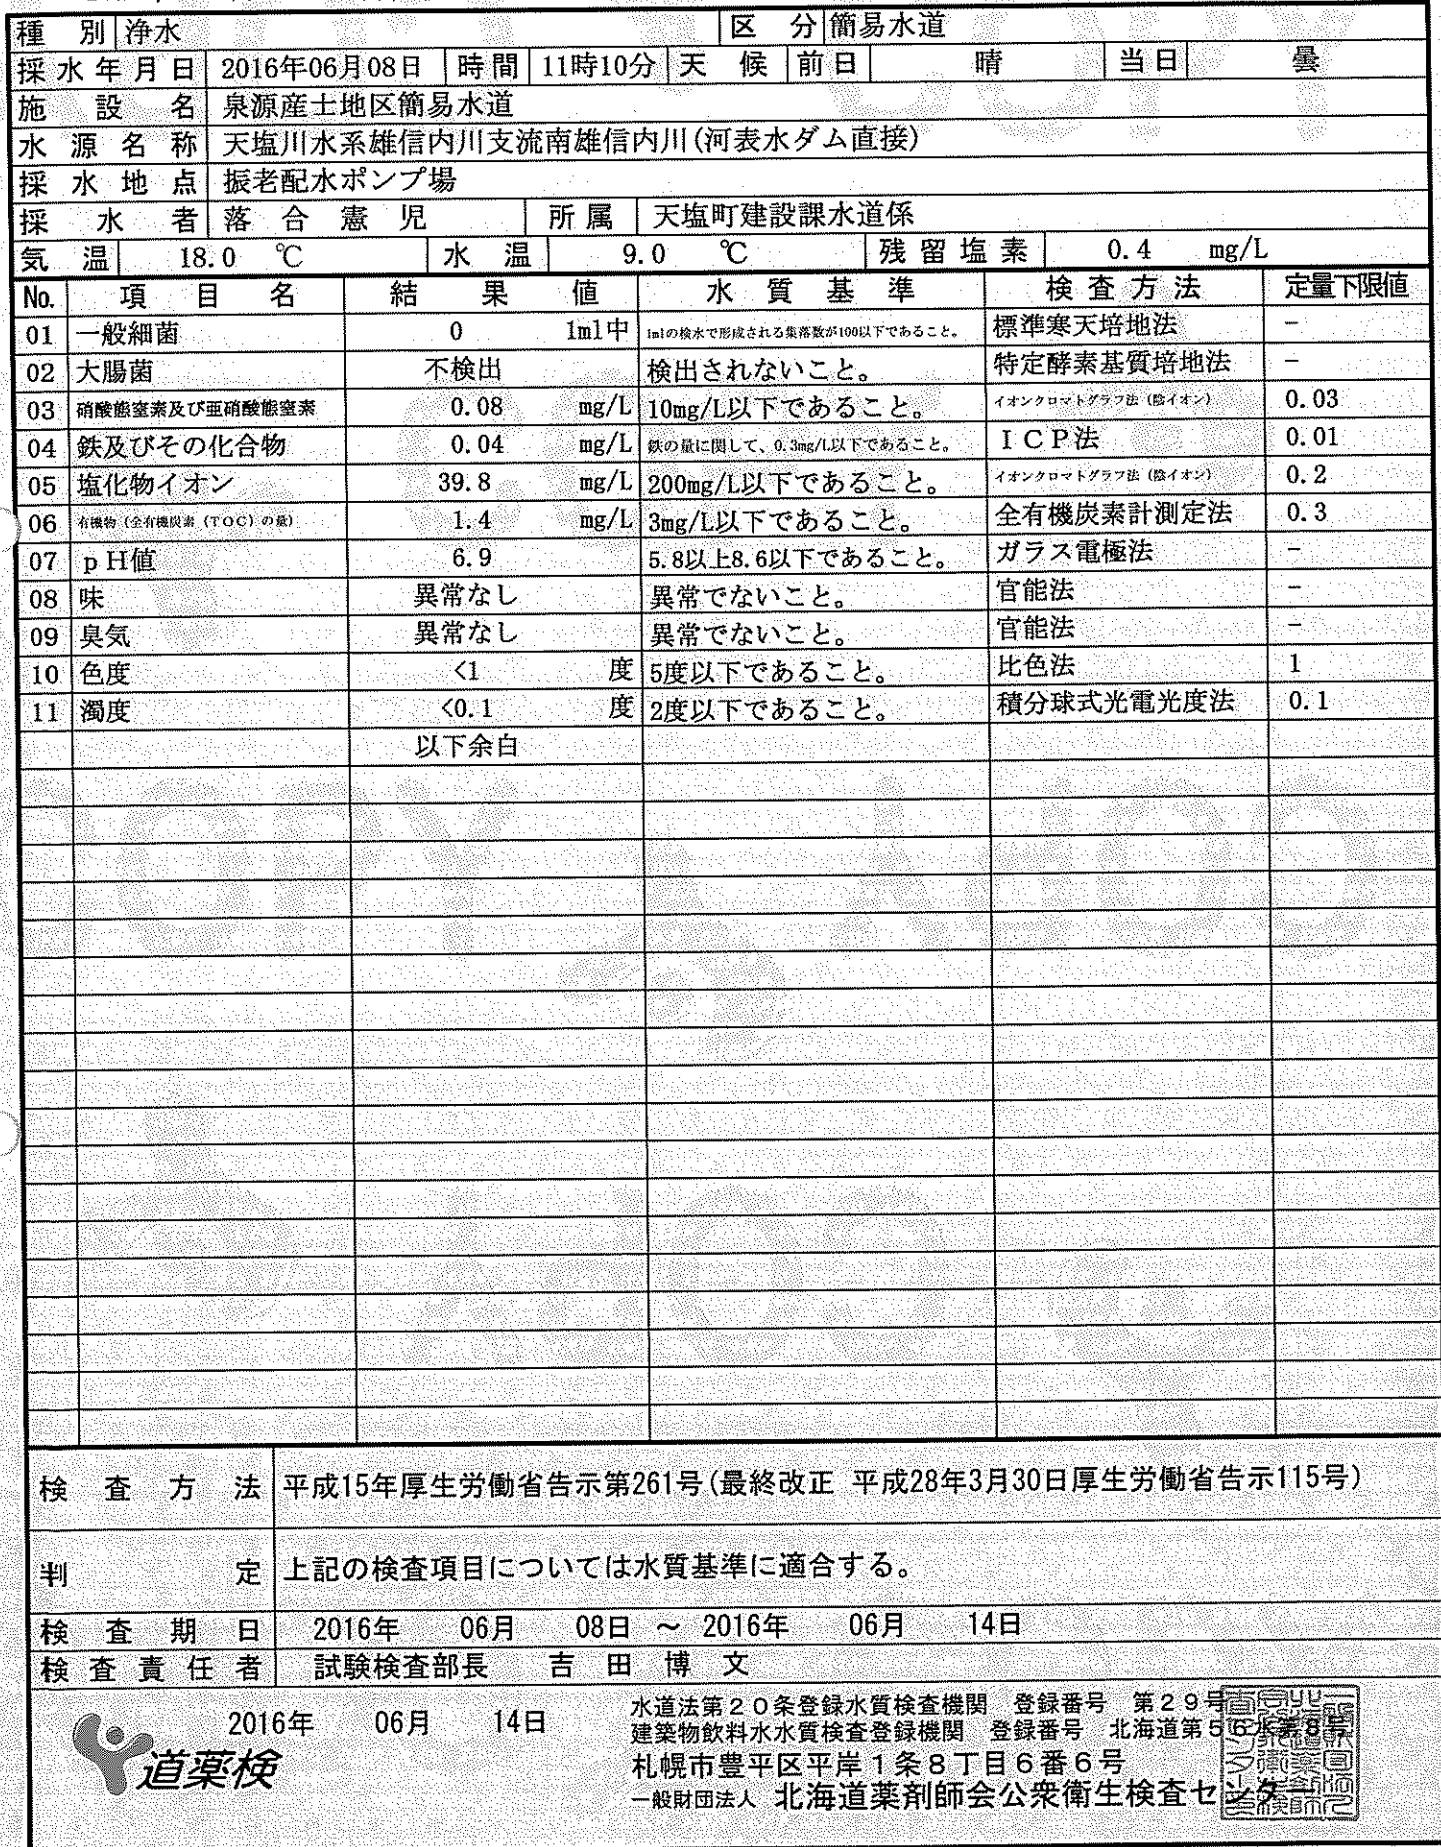 種別 浄水 区分 簡易水道
採水年月日 2016年06月08日 時間 11時10分 天候 前日 晴 当日 曇
施設名 泉源産土地区簡易水道
水源名称 天塩川水系雄信内川支流南雄信内川(河表水ダム直接)
採水地点 振老配水ポンプ場
採水者 落合憲児 所属 天塩町建設課水道係
気温 18.0 ℃ 水温 9.0 ℃ 残留塩素 0.4 mg/L
No. 項目名 結果値 水質基準 検査方法 定量下限値
01 一般細菌 0 1ml中 1mlの検水で形成される集落数が100以下であること。 標準寒天培地法 －
02 大腸菌 不検出 検出されないこと。 特定酵素基質培地法 －
03 硝酸態窒素及び亜硝酸態窒素 0.08 mg/L 10mg/L以下であること。 イオンクロマトグラフ法（陰イオン） 0.03
04 鉄及びその化合物 0.04 mg/L 鉄の量に関して、0.3mg/L以下であること。 ＩＣＰ法 0.01
05 塩化物イオン 39.8 mg/L 200mg/L以下であること。 イオンクロマトグラフ法（陰イオン） 0.2
06 有機物（全有機炭素（TOC）の量） 1.4 mg/L 3mg/L以下であること。 全有機炭素計測定法 0.3
07 ｐH値 6.9 5.8以上8.6以下であること。 ガラス電極法 －
08 味 異常なし 異常でないこと。 官能法 －
09 臭気 異常なし 異常でないこと。 官能法 －
10 色度 <1 度 5度以下であること。 比色法 1
11 濁度 <0.1 度 2度以下であること。 積分球式光電光度法 0.1
以下余白
検査方法 平成15年厚生労働省告示第261号(最終改正 平成28年3月30日厚生労働省告示115号)
判定 上記の検査項目については水質基準に適合する。
検査期日 2016年 06月 08日 ～ 2016年 06月 14日
検査責任者 試験検査部長 吉田博文
2016年 06月 14日
道薬検
水道法第２０条登録水質検査機関 登録番号 第２９号
建築物飲料水水質検査登録機関 登録番号 北海道第５６水第８号
札幌市豊平区平岸１条８丁目６番６号
一般財団法人 北海道薬剤師会公衆衛生検査センター